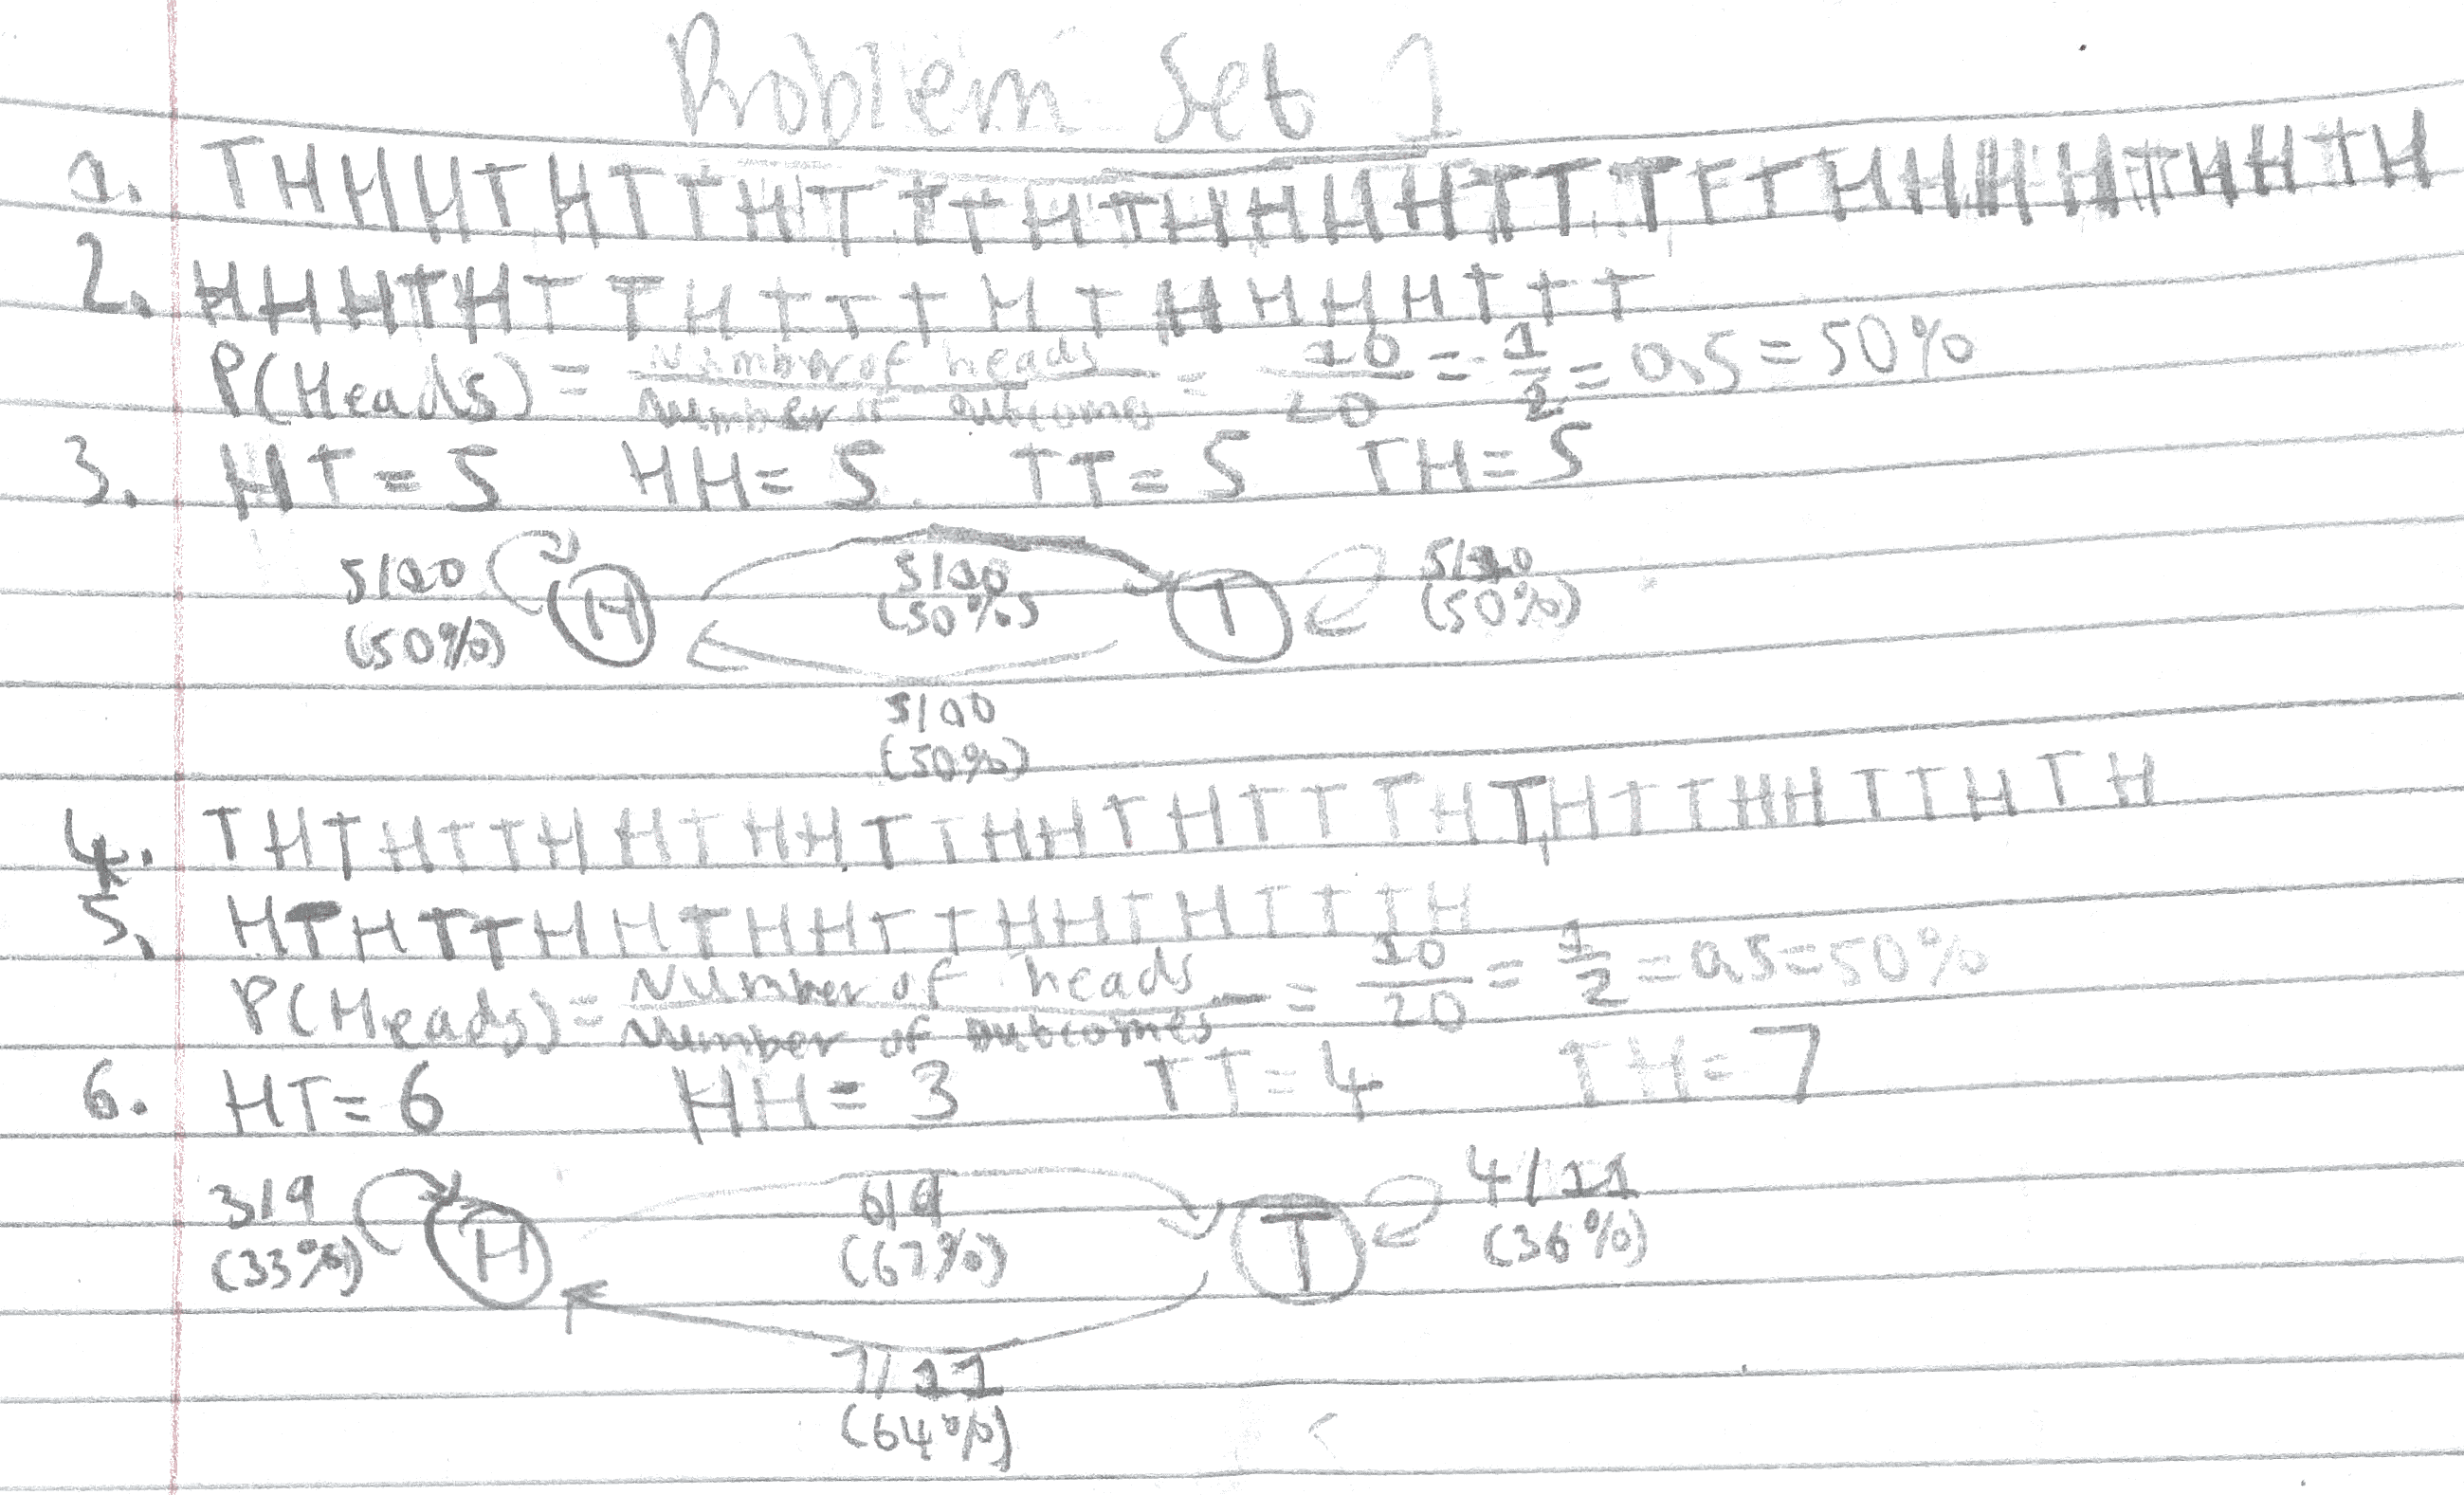 Problem Set 1
1. THHHTHTTHTTTHTHHHHTTTTTHHHHTHHTH
2. HHHTHTTHTTTHTHHHHTTT
P(Heads) = Number of heads / Number of outcomes = 10/20 = 1/2 = 0.5 = 50%
3. HT = 5 HH = 5 TT = 5 TH = 5
5/10 (50%) H 5/10 (50%) T 5/10 (50%)
5/10
(50%)
4. THTHTTHHTHHTTHHTHTTTHTHTTHHTTHTH
5. HTHTTHHTHHTTHHTHTTTH
P(Heads) = Number of heads / Number of outcomes = 10/20 = 1/2 = 0.5 = 50%
6. HT = 6 HH = 3 TT = 4 TH = 7
3/9 (33%) H 6/9 (67%) T 4/11 (36%)
7/11
(64%)